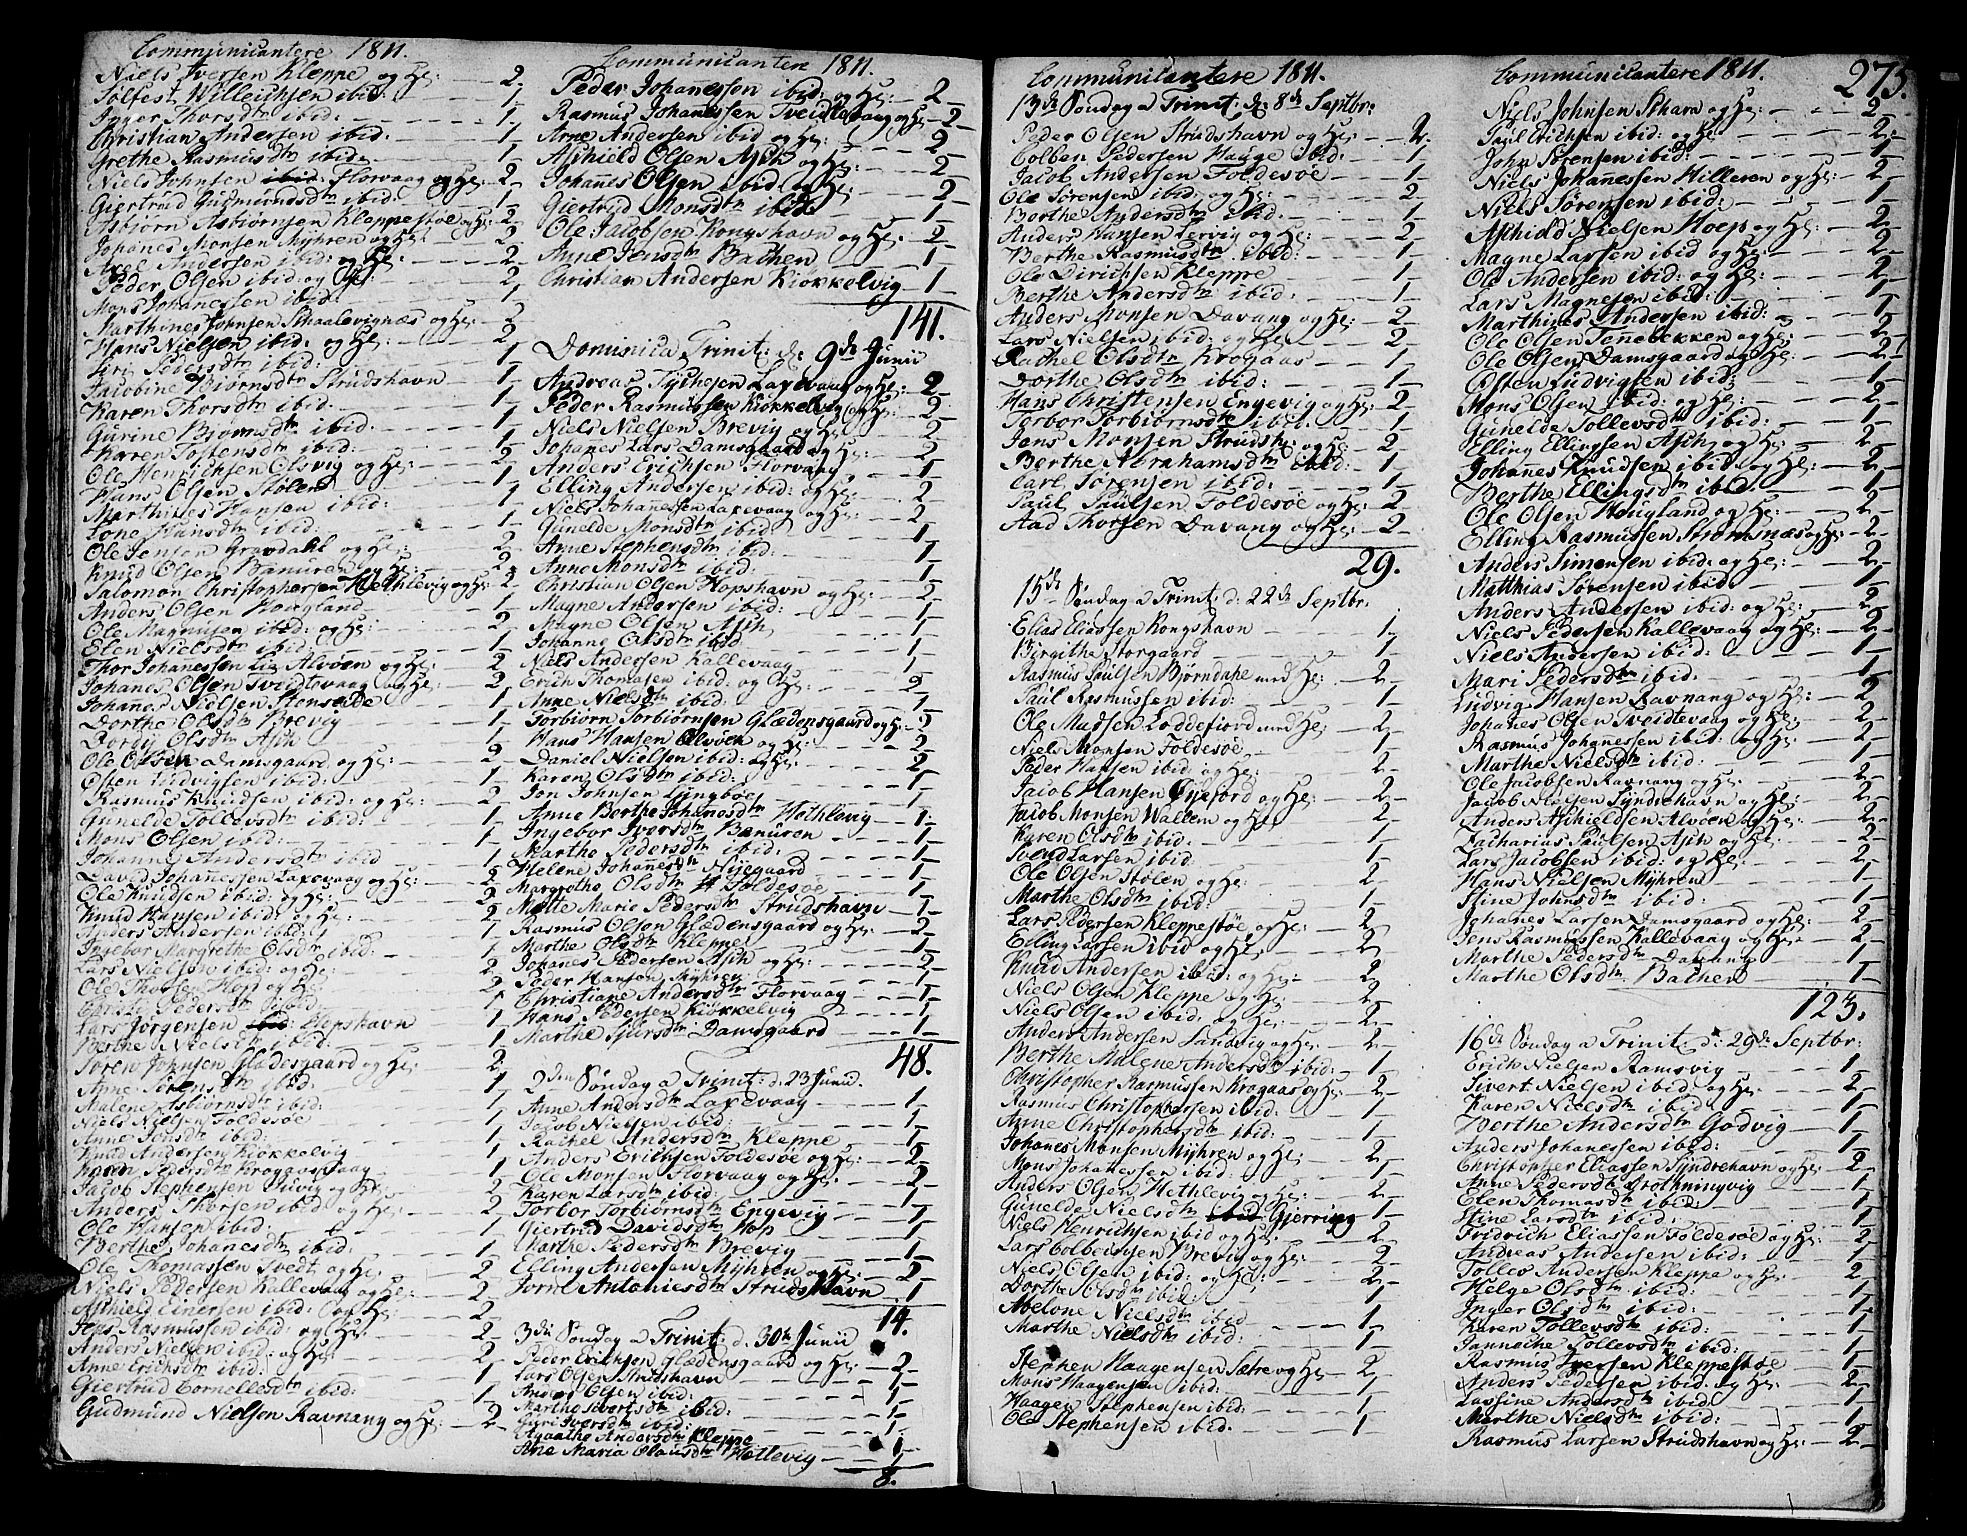 Communicantere 1811.
Niels Iversen Kleppe og He: 2
Sølfest Willeichsen ibid: 1
Inger Thorsdtr ibid: 1
Christian Andersen ibid: 1
Grethe Rasmusdtr ibid: 1
Niels Johnsen ibid: Florvaag og He: 2
Giertrud Gudmundsdtr ibid: 1
Asbiørn Asbiørnsen Kleppestøe og He: 2
Johanes Monsen Myhren og He: 2
Axel Andersen ibid: og He: 2
Peder Olsen ibid: og He: 2
Mons Johanessen ibid: 1
Marthines Johnsen Skaalevignæs og He: 2
Hans Nielsen ibid: og He: 2
Siri Pedersdtr ibid: 1
Jacobine Biørnsdtr Strudshavn 1
Karen Thorsdtr ibid: 1
Gurine Biørnsdtr ibid: 1
Karen Tostensdtr ibid: 1
Ole Henrichsen Olsvig og He: 2
Hans Olsen Stølen 1
Marthines Hansen ibid: 1
Lone Hansdtr ibid: 1
Ole Jensen Gravdahl og He: 2
Knud Olsen Banuren og He: 2
Salomon Christophersen Hethlevig og He: 2
Anders Olsen Hougland 1
Ole Magnusen ibid: og He: 2
Elen Nielsdtr ibid: 1
Thor Johanessen Liz Alvøen og He: 2
Johanes Olsen Tveitevaag og He: 2
Johanes Nielsen Stenseide 1
Dorthe Olsdtr Brevig 1
Dordij Olsdtr Ask 1
Ole Olsen Damsgaard og He: 2
Østen Ludvigsen ibid: 1
Rasmus Knudsen ibid: og He: 2
Gunelde Tollevsdtr ibid: 1
Mons Olsen ibid: 1
Johanna Andersdtr ibid 1
David Johanessen Laxevaag og He: 2
Ole Knudsen ibid: og He: 2
Knud Hansen ibid: og He: 2
Anders Andersen ibid: 1
Ingebor Margrethe Olsdtr ibid: 1
Lars Nielsen ibid: og He: 2
Ole Thorsen Hop og He: 2
Christi Pedersdtr ibid: 1
Lars Jørgensen ibid: Hopshavn 1
Berthe Nielsdtr ibid: 1
Søren Johnsen Glædesgaard og He: 2
Anne Sørensdtr ibid: 1
Malene Asbiørnsdtr ibid: 1
Niels Nielsen Foldesøe 1
Anne Jensdtr ibid: 1
Knud Andersen Kiøkkelvig 1
Karen Pedersdtr Krogaasvaag 1
Jacob Stephensen Juvig og He: 2
Anders Thorsen ibid og He: 2
Ole Hansen ibid: 1
Berthe Johanesdtr ibid: 1
Ole Thomassen Tvedt og He: 2
Niels Pedersen Kallevaag og He: 2
Aschield Einersen ibid: og He: 2
Jens Rasmussen ibid: og He: 2
Anders Nielsen ibid: og He: 2
Anne Erichsdtr ibid: 1
Giertrud Cornelledtr ibid: 1
Gudmund Nielsen Ravnang og He: 2
Communicantere 1811.
Peder Johanessen ibid: og He: 2
Rasmus Johanessen Tveidtevaag og He: 2
Arne Andersen ibid og He: 2
Aschield Olsen Ask og He: 2
Johanes Olsen ibid: og He: 2
Giertrud Monsdtr ibid: 1
Ole Jacobsen Kongshavn og He: 2
Anne Jensdtr Bachen 1
Christian Andersen Kiøkkelvig 1
141.
Dominica Trinit: d: 9de Junii
Andreas Tychesen Laxevaag og He: 2
Peder Rasmussen Kiøkkelvig og He: 2
Niels Nielsen Brevig og He: 2
Johanes Lars Damsgaard og He: 2
Anders Erichsen Florvaag 1
Elling Andersen ibid: og He: 2
Niels Johanessen Laxevaag og He: 2
Gunelde Monsdtr ibid: 1
Anne Stephensdtr ibid: 1
Anne Monsdtr ibid: 1
Christian Olsen Hopshavn og He: 2
Magne Andersen ibid: 1
Magne Olsen Ask 1
Johanne Olsdtr ibid 1
Niels Andersen Kallevaag 1
Erich Thomasen ibid: og He: 2
Anne Nielsdtr ibid: 1
Torbiørn Torbiørnsen Glædensgaard og He: 2
Hans Hansen Alvøen og He: 2
Daniel Nielsen ibid: og He: 2
Karen Olsdtr ibid: 1
Jon Johnsen Liungboe 1
Anne Berthe Johanesdtr Hethlevig 1
Ingebor Iversdtr Banuren 1
Marthe Pedersdtr ibid: 1
Helene Johanesdtr Nygaard 1
Margrethe Olsdtr Foldesøe 1
Mette Marie Pedersdtr Strudshavn 1
Rasmus Olsen Glædensgaard og He: 2
Marthe Olsdtr Kleppe 1
Johanes Pedersen Ask og He: 2
Peder Hansen Myhren 1
Christiane Andersdtr Florvaag 1
Hans Pedersen Kiøkkelvig 1
Marthe Siursdtr Damsgaard 1
48.
2den Søndag a Trinit: d: 23 Junii
Anne Andersdtr Laxevaag 1
Jacob Nielsen ibid: 1
Rachel Andersdtr Kleppe 1
Anders Erichsen Foldesøe og He: 2
Ole Monsen Florvaag og He: 2
Karen Larsdtr ibid: 1
Torbor Torbiørnsdtr Engevig 1
Giertrud Davidsdtr Hop 1
Marthe Pedersdtr Brevig 1
Elling Andersen Myhren og He: 2
Jorne Antoniesdtr Strudshavn 1
14.
3die Søndag a Trinit: d. 30te Junii
Peder Erichsen Glædensgaard og He: 2
Lars Olsen Strudshavn 1
Anders Olsen ibid: 1
Marthe Sivertsdtr ibid: 1
Guri Iversdtr ibid:
Agathe Andersdtr Kleppe 1
Ane Maria Olausdtr Hetlevig 1
8.
Communicantere 1811.
13de Søndag a Trinit: d: 8de Septbr:
Peder Olsen Strudshavn og He: 2
Colben Pedersen Hauge ibid: 1
Jacob Andersen Foldesøe 1
Ole Sørensen ibid: og He: 2
Berthe Andersdtr ibid: 1
Anders Hansen Lervig og He: 2
Berthe Rasmusdtr ibid: 1
Ole Dirichsen Kleppe 1
Berthe Andersdtr ibid: 1
Anders Monsen Davang og He: 2
Lars Nielsen ibid: og He: 2
Rachel Olsdtr Krogaas 1
Dorthe Olsdtr ibid: 1
Hans Christensen Engevig og He: 2
Torbor Torbiørnsdtr ibid: 1
Jens Monsen Strudsh: og He: 2
Berthe Abrahamsdtr ibid: 1
Carl Sørensen ibid: 1
Paul Paulsen Foldesøe og He: 2
Aad Thorsen Davang og He: 2
29.
15de Søndag a Trinit: d: 22de Septbr:
Elias Eliassen Kongshavn 1
Birgithe Storgaard 1
Rasmus Paulsen Biørndahl med He: 2
Paul Rasmussen ibid: 1
Ole Madsen Loddefiord med He: 2
Niels Monsen Foldesøe 1
Peder Hansen ibid: og He: 2
Jacob Hansen Øyefiord og He: 2
Jacob Monsen Walten og He: 2
Karen Olsdtr ibid: 1
Svend Larsen ibid: 1
Ole Olsen Stølen og He: 2
Marthe Olsdtr ibid: 1
Lars Pedersen Kleppestøe og He: 2
Elling Larsen ibid og He: 2
Knud Andersen ibid: og He: 2
Niels Olsen Kleppe og He: 2
Niels Olsen ibid: og He: 2
Anders Andersen Sandvig og He: 2
Berthe Malene Andersdtr ibid: 1
Christopher Rasmussen Krogaas og He: 2
Rasmus Christophersen ibid: 1
Anne Christophersdtr ibid: 1
Johanes Monsen Myhren og He: 2
Mons Johanessen ibid: 1
Anders Olsen Hethlevig og He: 2
Gunelde Nielsdtr ibid Gierring 1
Niels Henrichsen ibid og He: 2
Lars Colbeinsen Brevig og He: 2
Niels Olsen ibid: og He: 2
Dorthe Olsdtr ibid: 1
Abelone Nielsdtr ibid 1
Marthe Nielsdtr ibid: 1
Stephen Haagensen Sætre og He: 2
Mons Haagensen ibid: 1
Haagen Stephensen ibid: 1
Ole Stephensen ibid: 1
Communicantere 1811.
275.
Niels Johnsen Skaren og He: 2
Paul Erichsen ibid: og He 2
John Sørensen ibid: 1
Niels Johanessen Hilleren og He: 2
Niels Sørensen ibid: 1
Aschield Nielsen Hoep og He: 2
Magne Larsen ibid og He: 2
Ole Andersen ibid: og He: 2
Lars Magnesen ibid: 1
Marthines Andersen ibid: 1
Ole Olsen Tenebekken og He: 2
Ole Olsen Damsgaard og He: 2
Østen Ludvigsen ibid: 1
Mons Olsen ibid: og He: 2
Gunelde Tollevsdtr ibid: 1
Elling Ellingsen Ask og He: 2
Johannes Knudsen ibid og He: 2
Berthe Ellingsdtr ibid: 1
Ole Olsen Hougland og He: 2
Elling Rasmussen Strømsnæs og He: 2
Anders Simensen ibid: og He: 2
Matthias Sørensen ibid: 1
Anders Andersen ibid: og He: 2
Niels Pedersen Kallevaag og He: 2
Niels Andersen ibid: 1
Mari Pedersdtr ibid: 1
Ludvig Hansen Ravnang og He: 2
Johanes Olsen Tveidtevaag og He: 2
Rasmus Johanessen ibid: 1
Marthe Nielsdtr ibid: 1
Ole Jacobsen Ravnang og He: 2
Jacob Nielsen Syndrehavn og He: 2
Anders Aschieldsen Alvøen og He: 2
Zacharias Paulsen Ask og He: 2
Lars Jacobsen ibid: og He: 2
Hans Nielsen Myhren 1
Stine Johnsdtr ibid: 1
Johanes Larsen Damsgaard og He: 2
Jens Rasmussen Kallevaag og He: 2
Marthe Pedersdtr Davang 1
Marthe Olsdtr Bachen 1
123.
16de Søndag a Trinit: d: 29de Septbr:
Erich Nielsen Ramsvig 1
Sivert Nielsen ibid: og He: 2
Karen Nielsdtr ibid: 1
Berthe Andersdtr Godvig 1
Anders Johanessen ibid: 1
Christopher Eliassen Syndrehavn og He: 2
Anne Pedersdtr Drothningvig 1
Elen Thomasdtr ibid: 1
Stine Larsdtr ibid: 1
Fridrich Eliassen Foldesøe og He: 2
Andreas Andersen ibid: 1
Tolles Andersen Kleppe og He: 2
Helge Olsdtr ibid: 1
Inger Olsdtr ibid: 1
Karen Tollevsdtr ibid: 1
Janneche Tollevsdtr ibid: 1
Rasmus Iversen Kleppestøe 1
Anders Pedersen ibid: og He: 2
Lassine Andersdtr ibid: 1
Marthe Nielsdtr ibid: 1
Rasmus Larsen Strudshavn og He: 2